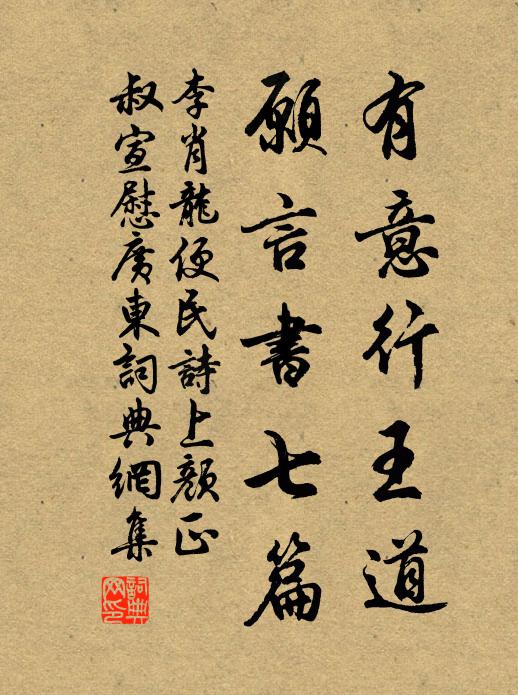 有意行王道
願言書七篇
李肖龍便民詩上顏正
叔宣慰廣東詞典網集
詞典网印